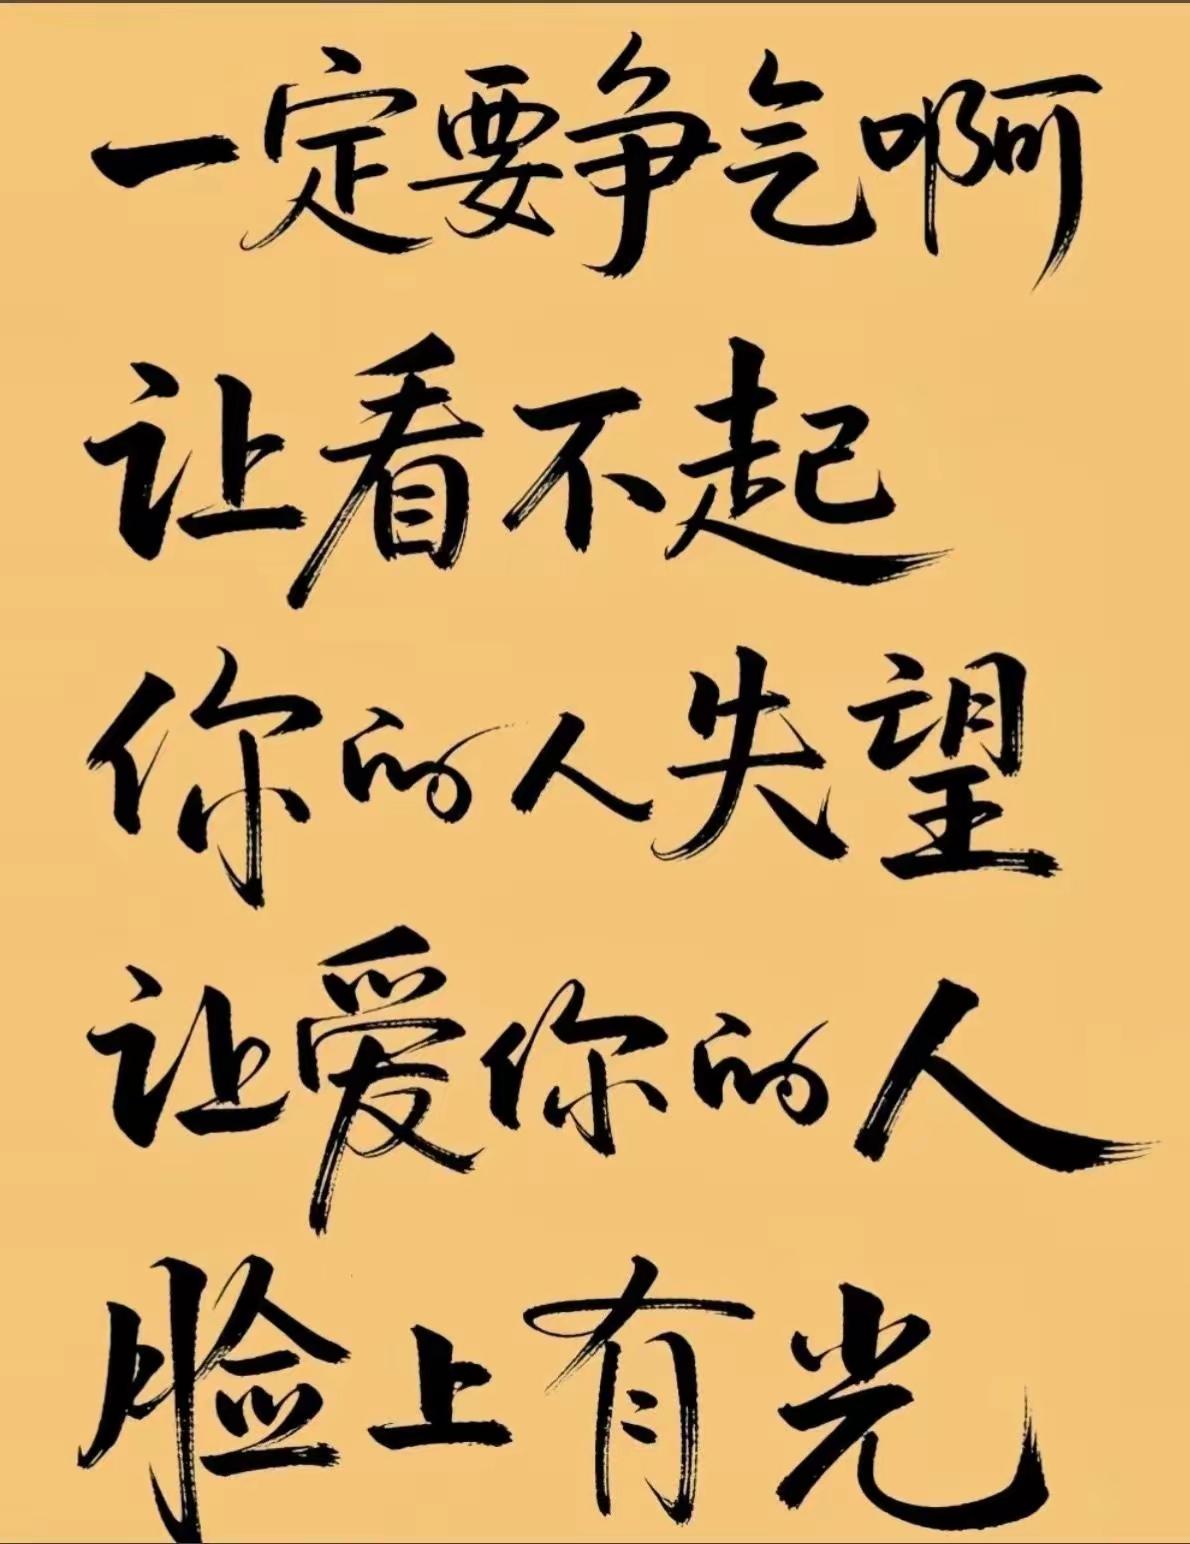 一定要争气啊
让看不起
你的人失望
让爱你的人
脸上有光